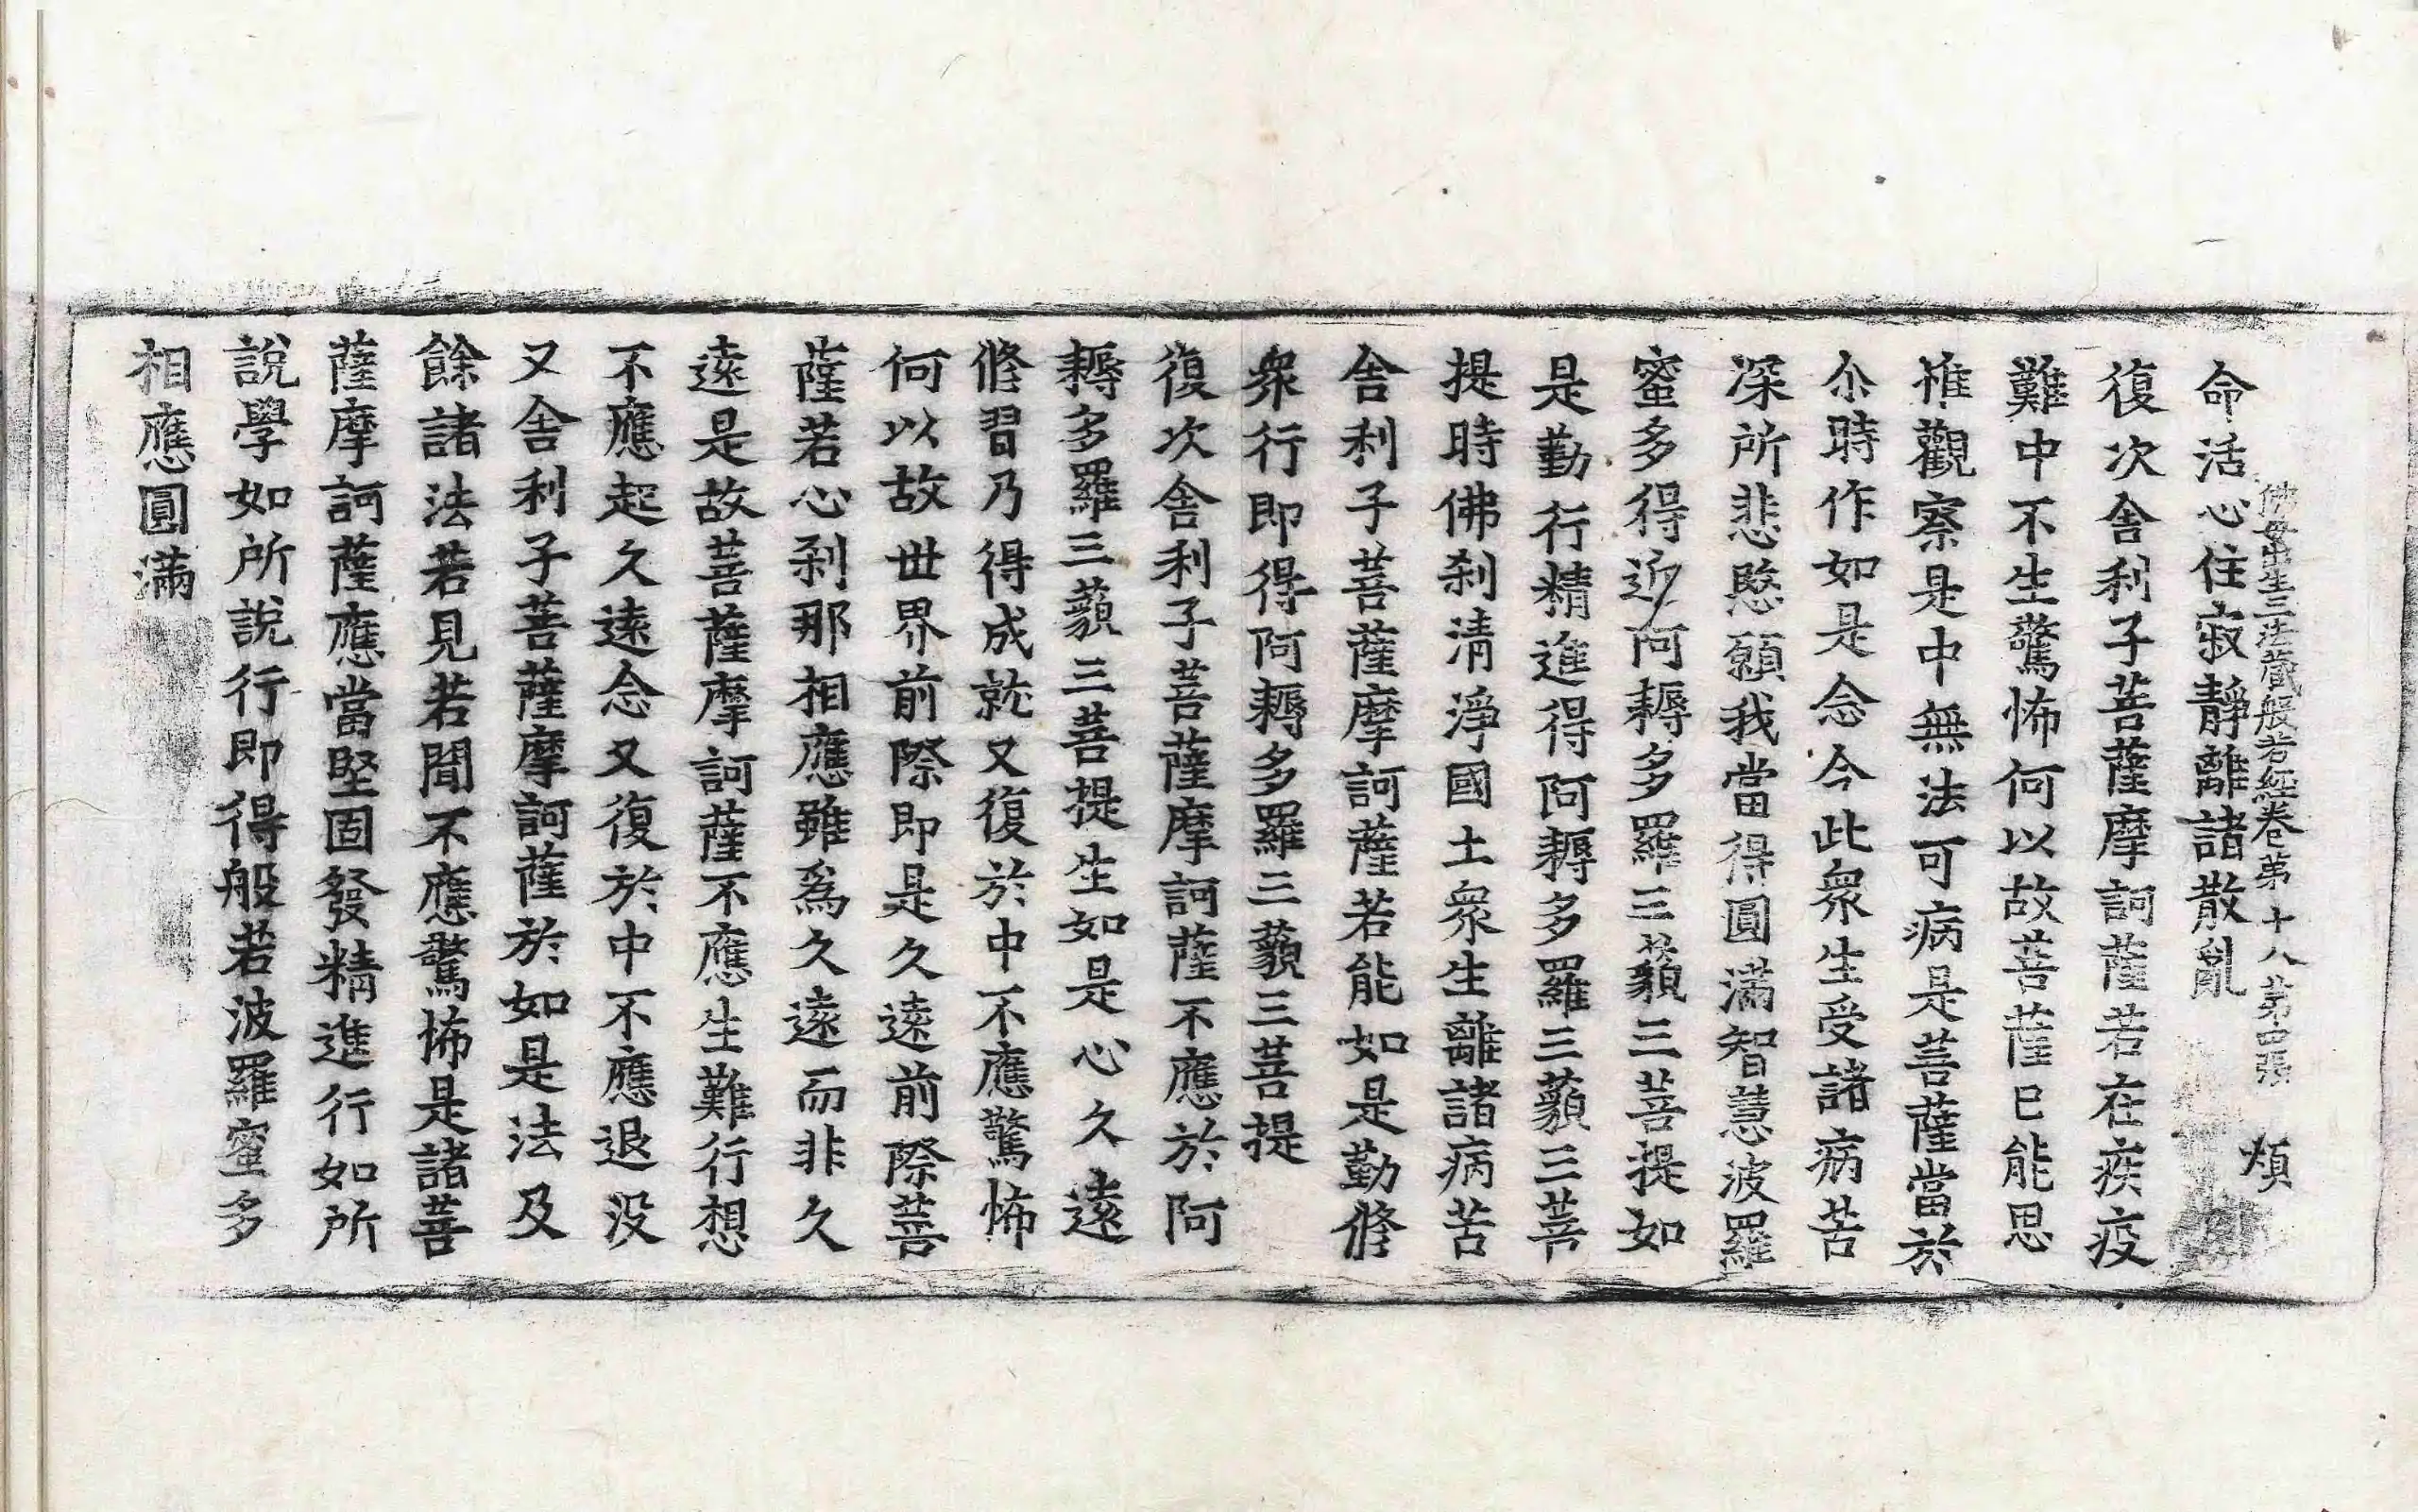 佛母出生三法藏般若經卷第十八 第四張 煩
命活心住寂靜離諸散亂
復次舍利子菩薩摩訶薩若在疾疫
難中不生驚怖何以故菩薩已能思
惟觀察是中無法可病是菩薩當於
尒時作如是念今此衆生受諸病苦
深所悲愍願我當得圓滿智慧波羅
蜜多得近阿耨多羅三藐三菩提如
是勤行精進得阿耨多羅三藐三菩
提時佛剎清淨國土衆生離諸病苦
舍利子菩薩摩訶薩若能如是勤修
衆行即得阿耨多羅三藐三菩提
復次舍利子菩薩摩訶薩不應於阿
耨多羅三藐三菩提生如是心久遠
修習乃得成就又復於中不應驚怖
何以故世界前際即是久遠前際菩
薩若心剎那相應雖爲久遠而非久
遠是故菩薩摩訶薩不應生難行想
不應起久遠念又復於中不應退没
又舍利子菩薩摩訶薩於如是法及
餘諸法若見若聞不應驚怖是諸菩
薩摩訶薩應當堅固發精進行如所
說學如所說行即得般若波羅蜜多
相應圓滿